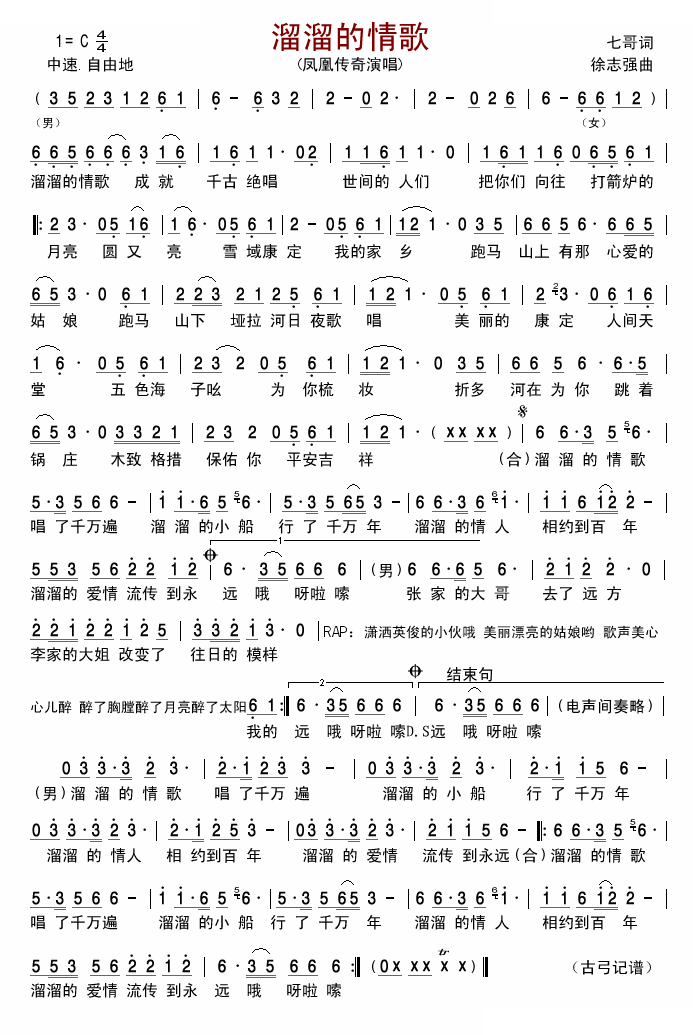 溜溜的情歌
1= C 4/4
七哥词
中速.自由地
(凤凰传奇演唱)
徐志强曲
( 3 5 2 3 1 2 6 1 | 6 - 6 3 2 | 2 - 0 2 · | 2 - 0 2 6 | 6 - 6 6 1 2 )
(男) (女)
6 6 5 6 6 6 3 1 6 | 1 6 1 1 · 0 2 | 1 1 6 1 1 1 · 0 | 1 6 1 1 6 0 6 5 6 1
溜溜的情歌 成 就 千古 绝唱 世间的 人们 把你们 向往 打箭炉的
‖: 2 3 · 0 5 1 6 | 1 6 · 0 5 6 1 | 2 - 0 5 6 1 | 1 2 1 · 0 3 5 | 6 6 5 6 · 6 6 5
月亮 圆 又 亮 雪 域康 定 我的家 乡 跑马 山上 有那 心爱的
6 5 3 · 0 6 1 | 2 2 3 2 1 2 5 6 1 | 1 2 1 · 0 5 6 1 | 2 2 3 · 0 6 1 6
姑 娘 跑马 山下 垭拉 河日 夜歌 唱 美 丽的 康定 人间天
1 6 · 0 5 6 1 | 2 3 2 0 5 6 1 | 1 2 1 · 0 3 5 | 6 6 5 6 · 6 · 5
堂 五 色海 子吆 为 你梳 妆 折多 河在 为 你 跳 着
6 5 3 · 0 3 3 2 1 | 2 3 2 0 5 6 1 | 1 2 1 · ( x x x x ) | 6 6 · 3 5 5 6 ·
锅 庄 木致 格措 保佑 你 平安吉 祥 (合)溜 溜 的 情 歌
5 · 3 5 6 6 - | 1 1 · 6 5 5 6 · | 5 · 3 5 6 5 5 - | 6 6 · 3 6 6 1 · | 1 1 6 1 2 2 -
唱 了千万遍 溜 溜 的小 船 行 了 千万 年 溜溜 的情 人 相约到百 年
5 5 3 5 6 2 2 1 2 | 1 6 · 3 5 6 6 6 | (男) 6 6 · 6 5 6 · | 2 1 2 2 · 0
溜溜的 爱情 流传 到永 远 哦 呀啦 嗦 张 家 的大 哥 去了 远 方
2 2 1 2 2 1 2 | 3 3 2 1 3 · 0 | RAP：潇洒英俊的小伙哦 美丽漂亮的姑娘哟 歌声美心
李家的大姐 改变了 往日的 模样
结束句
心儿醉 醉了胸膛醉了月亮醉了太阳 6 1 :‖ 2 6 · 3 5 6 6 6 | 6 · 3 5 6 6 6 | (电声间奏略) |
我的 远 哦 呀啦 嗦D.S远 哦 呀啦 嗦
0 3 3 · 3 2 3 · | 2 · 1 2 3 3 - | 0 3 3 · 3 2 3 · | 2 · 1 1 5 6 - |
(男)溜 溜 的 情 歌 唱 了千万 遍 溜溜 的 小 船 行 了 千万 年
0 3 3 · 3 2 3 · | 2 · 1 2 5 3 - | 0 3 3 · 3 2 3 · | 2 1 1 5 6 - ‖: 6 6 · 3 5 5 6 · |
溜溜 的 情人 相 约到百 年 溜溜 的 爱情 流传 到永远(合)溜溜 的情 歌
5 · 3 5 6 6 - | 1 1 · 6 5 5 6 · | 5 · 3 5 6 5 5 - | 6 6 · 3 6 6 1 · | 1 1 6 1 2 2 - |
唱 了千万遍 溜溜 的小 船 行 了 千万 年 溜溜 的情 人 相约到百 年
5 5 3 5 6 2 2 1 2 | 6 · 3 5 6 6 6 :‖ ( 0 x x x x x ) ‖ tr (古弓记谱)
溜溜的 爱情 流传 到永 远 哦 呀啦 嗦